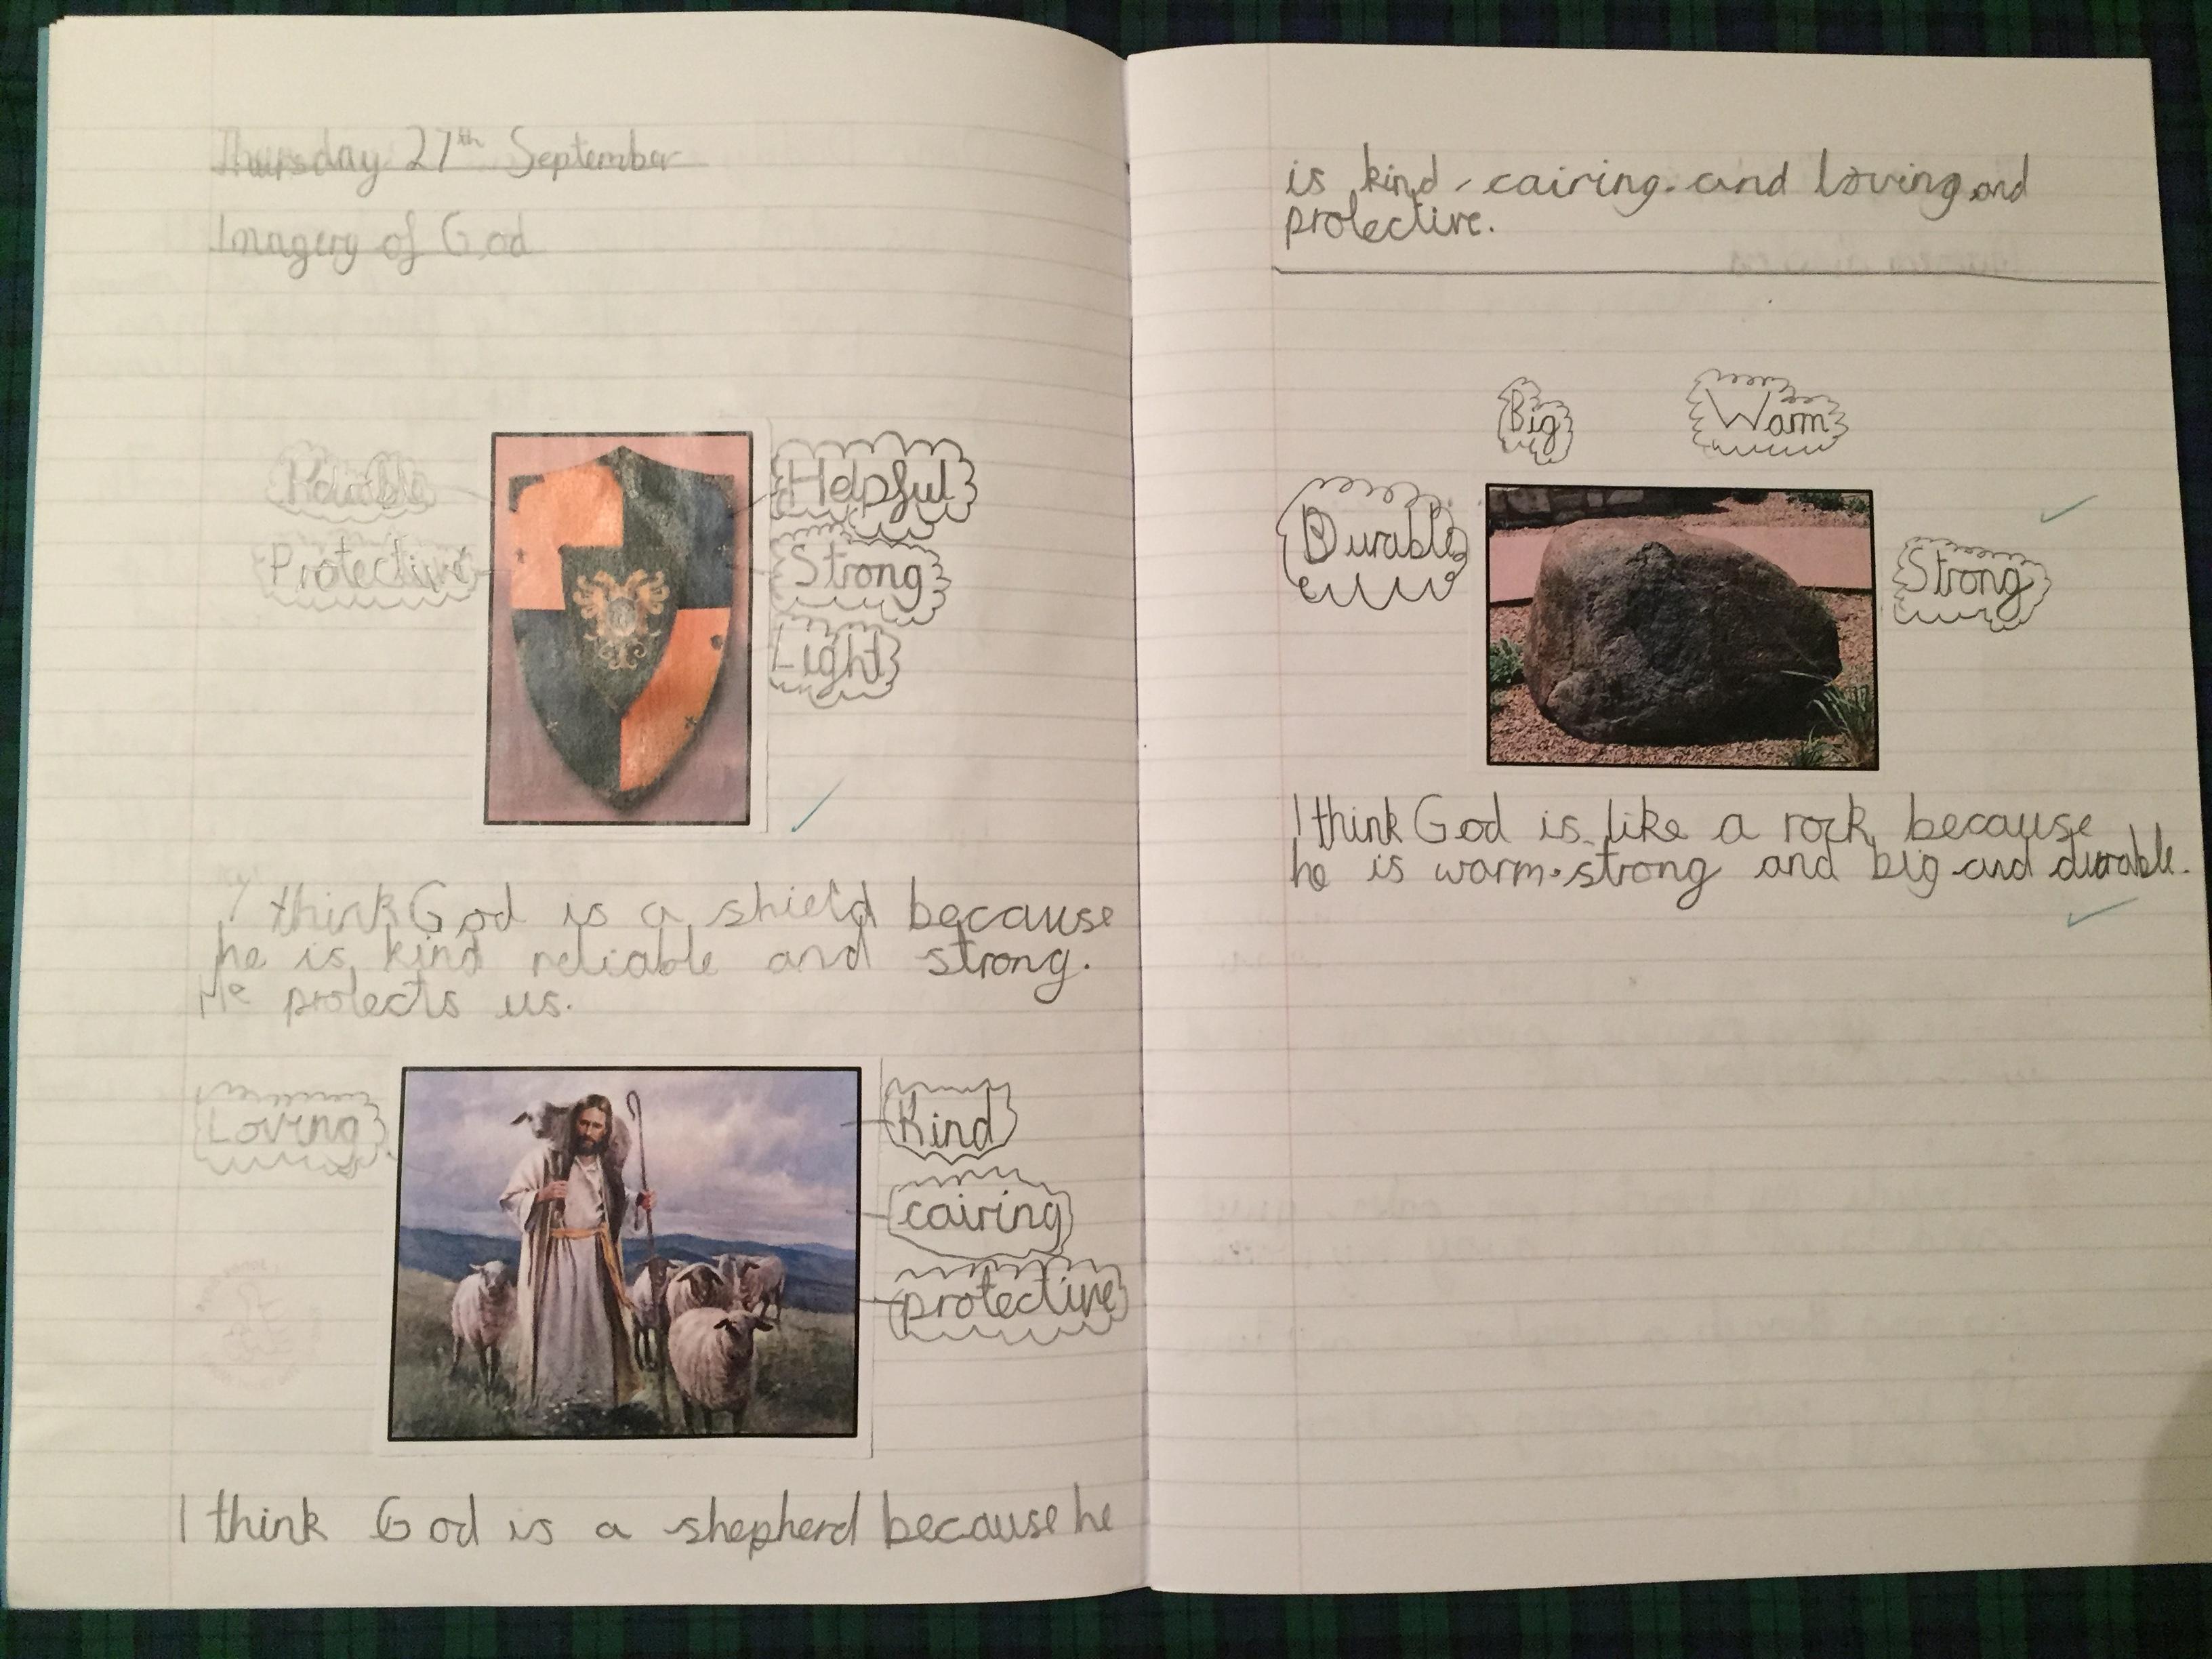 Thursday 27th September
Imagery of God
Reliable
Protective
Helpful
Strong
Light
I think God is a shield because
he is kind reliable and strong.
He protects us.
Loving
Kind
cairing
protective
I think God is a shepherd because he
is kind, cairing. and loving and
protective.
Big
Warm
Durable
Strong
I think God is like a rock because
he is warm.strong and big and durable.